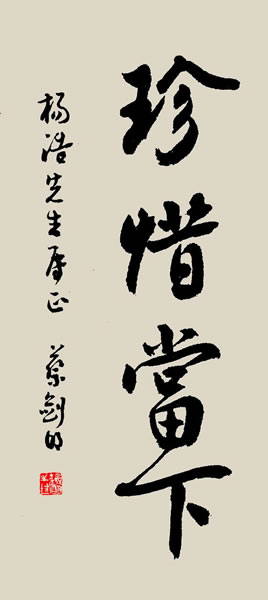 珍惜當下
楊浩先生屬正 蔡劍明